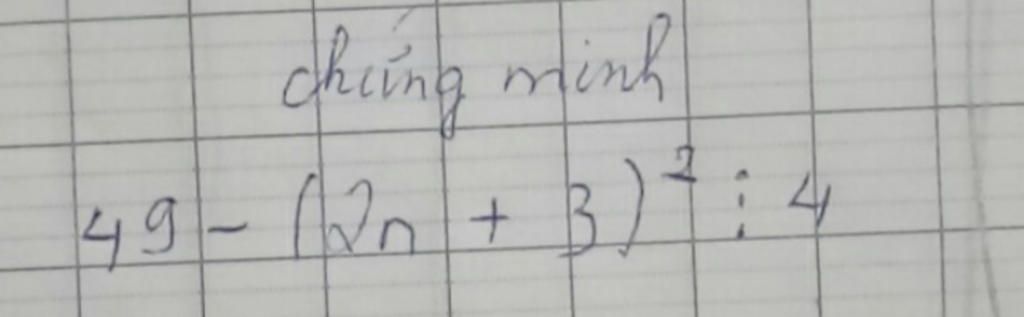 chứng minh
49 - (2n + 3)² ⋮ 4